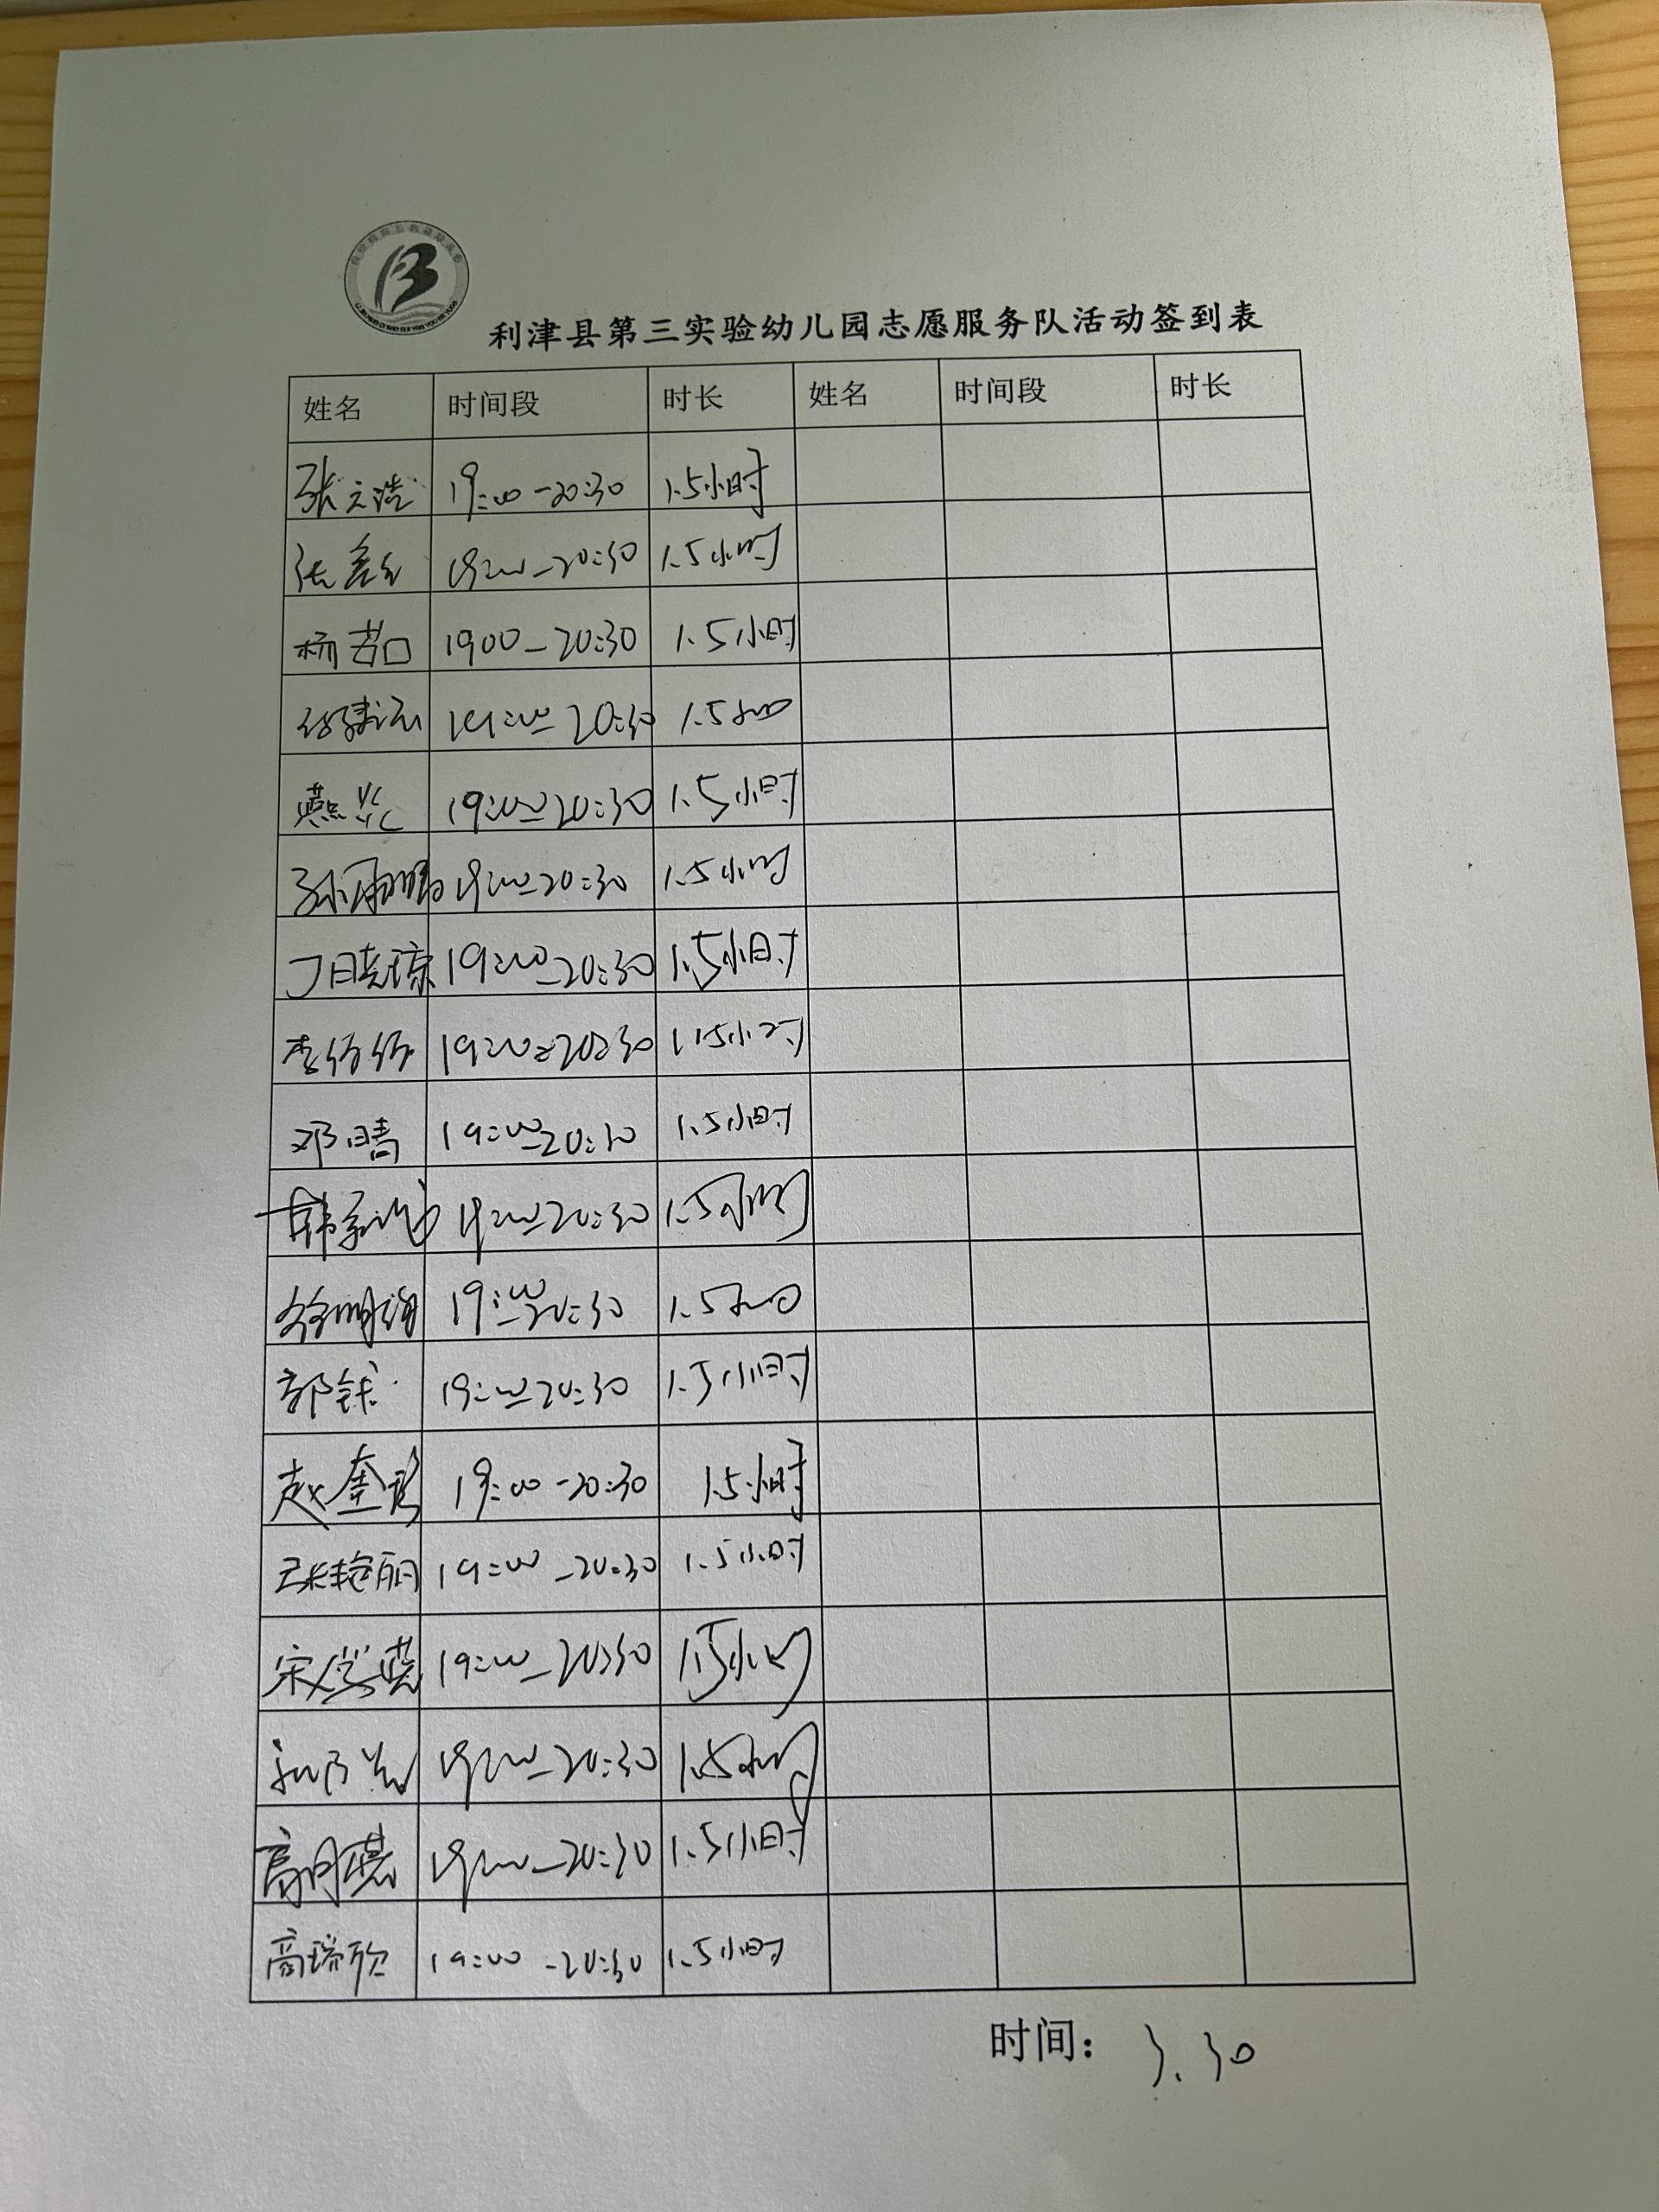 利津县第三实验幼儿园志愿服务队活动签到表
姓名 时间段 时长 姓名 时间段 时长
张立浩 19:00-20:30 1.5小时
19:00-20:30 1.5小时
1900-20:30 1.5小时
19:00-20:30 1.5小时
燕华 19:00-20:30 1.5小时
19:00-20:30 1.5小时
丁晓琼 19:00-20:30 1.5小时
李倩倩 19:00-20:30 1.5小时
邓晴 19:00-20:30 1.5小时
19:00-20:30 1.5小时
徐明 19:00-20:30 1.5小时
19:00-20:30 1.5小时
赵奎 19:00-20:30 1.5小时
张艳丽 19:00-20:30 1.5小时
宋学燕 19:00-20:30 1.5小时
19:00-20:30 1.5小时
高月慧 19:00-20:30 1.5小时
高瑞欣 19:00-20:30 1.5小时
时间: 3.30